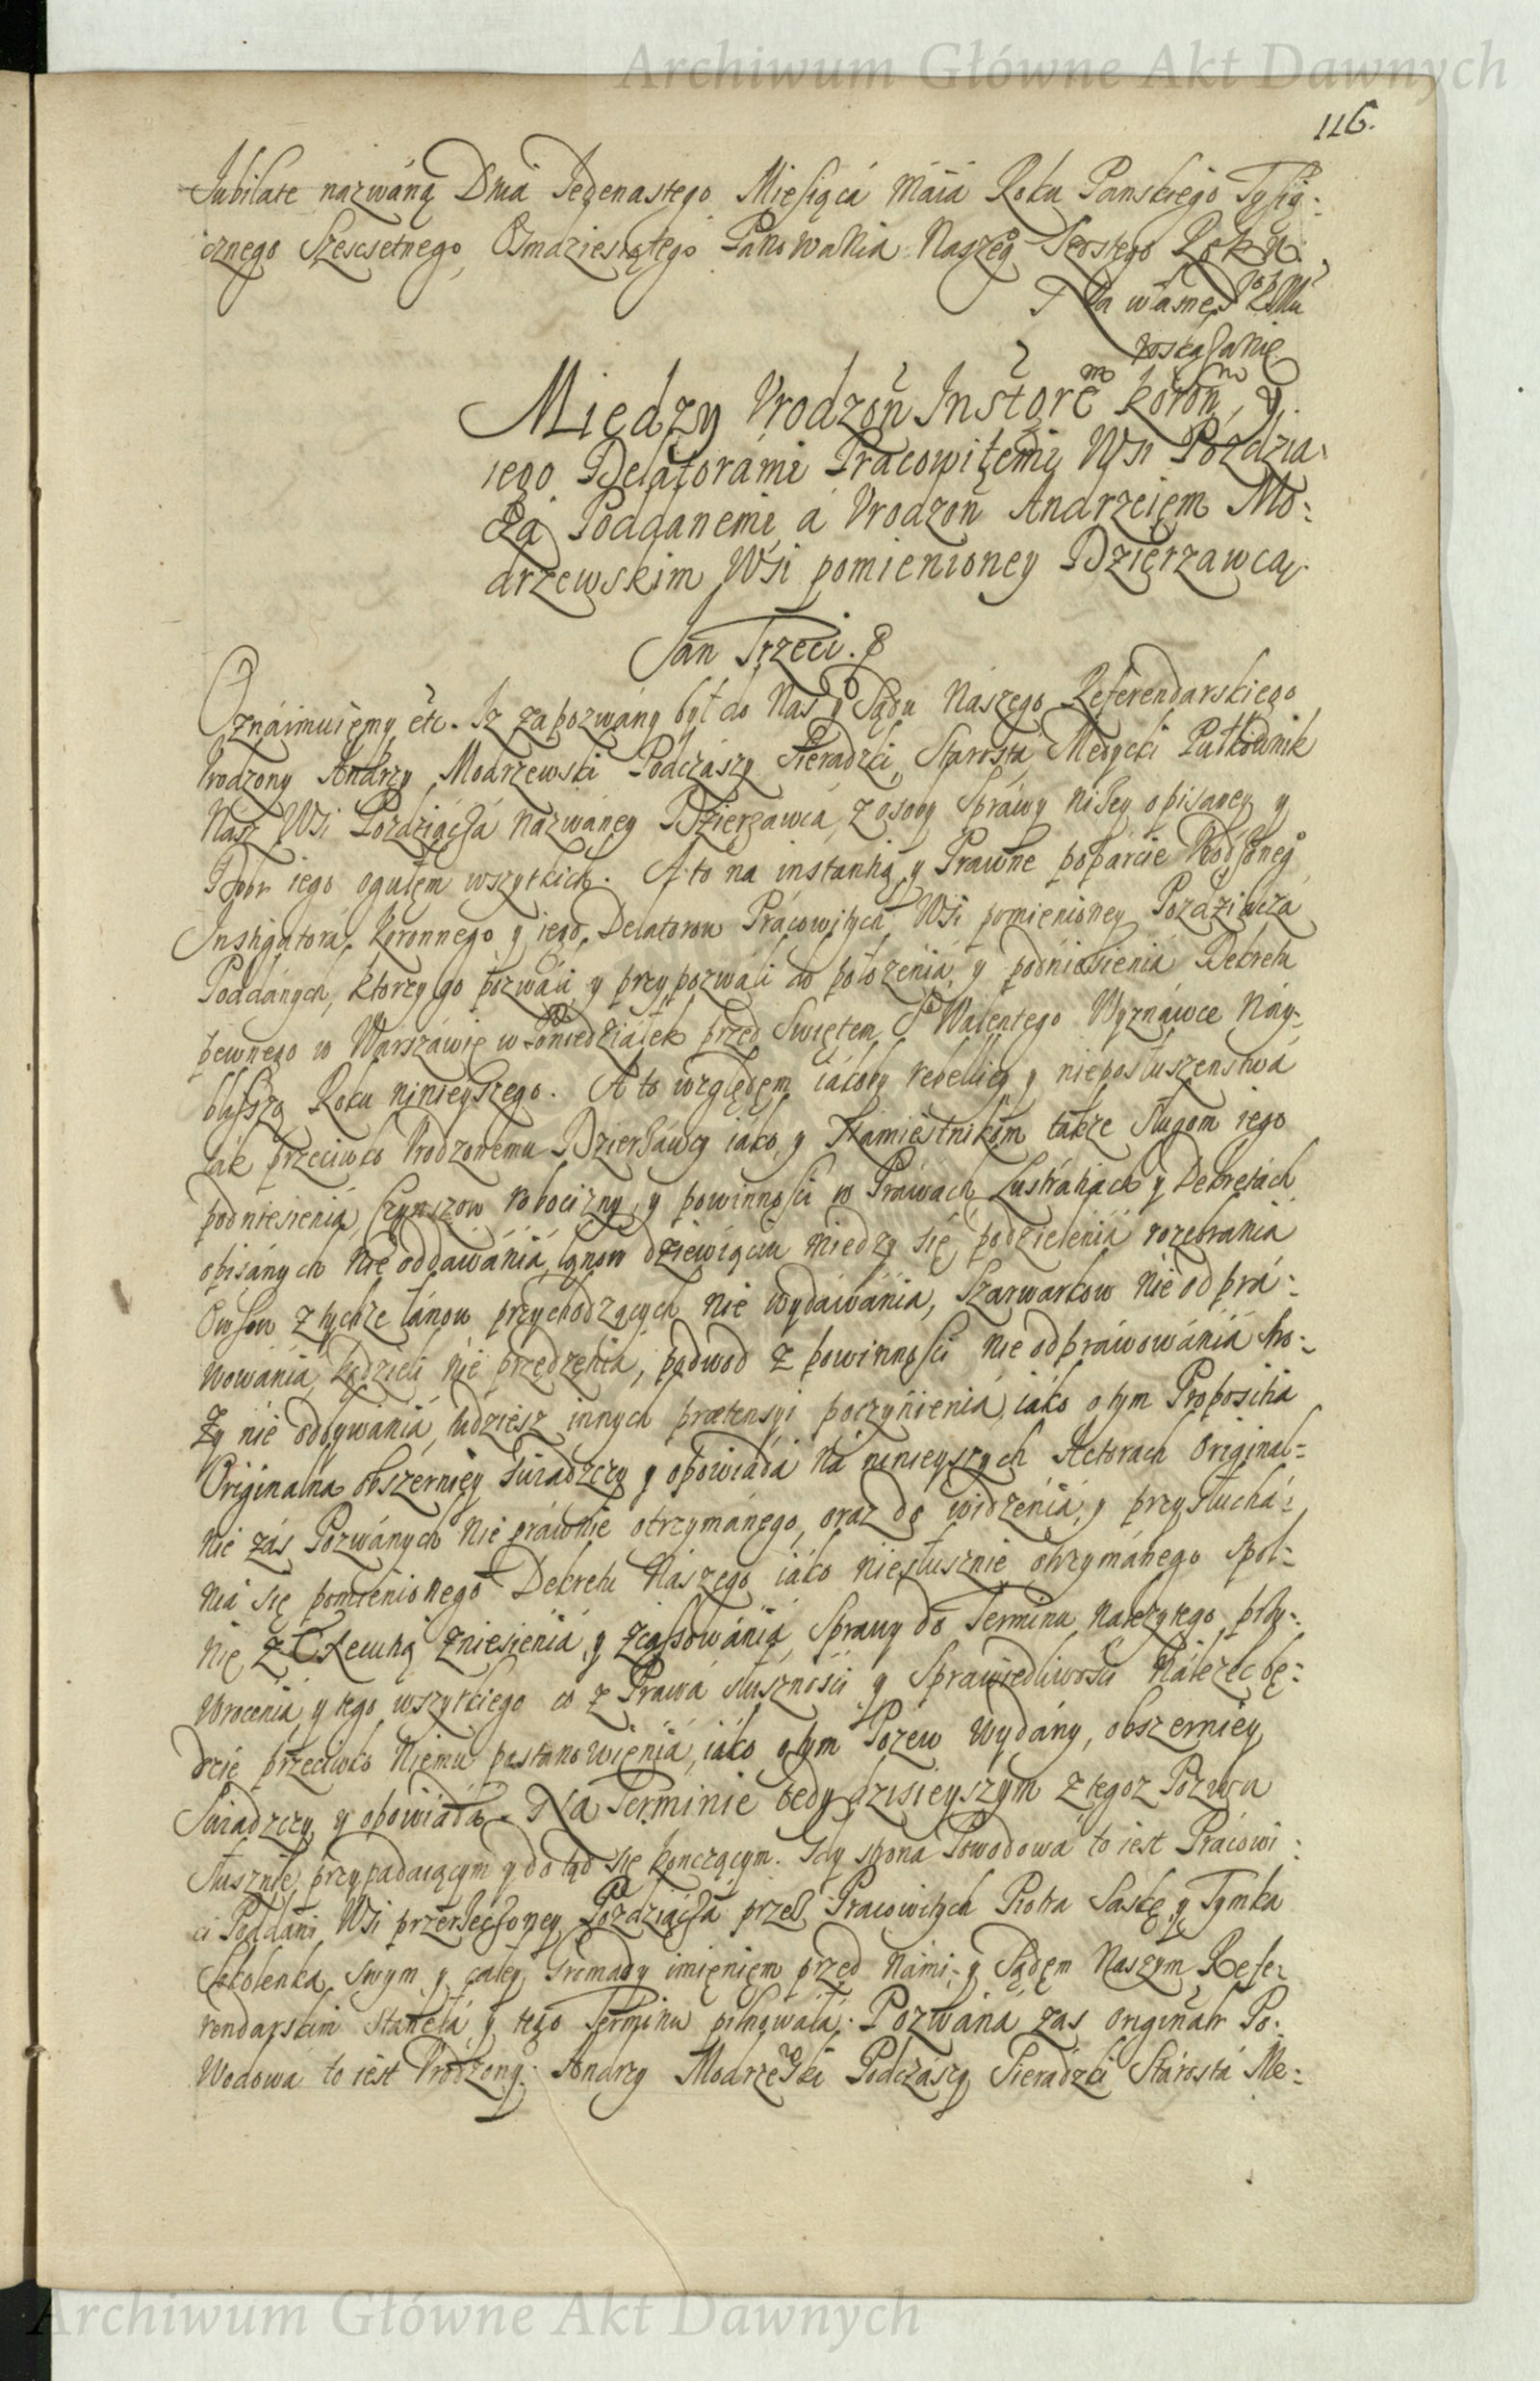 Archiwum Główne Akt Dawnych
116.
Jubilate nazwáną Dniá Jedenastego Miesiącá Máiá Roku Panskiego Tysią:
cznego Szescsetnego, Osmdziesiątego Panowania Naszeg° Szostego Roku.
Na własne
roskazanie
Między Vrodzon̄ Insẗore͂m Koron̄m, y
iego Delatorámi Pracowitemi Wsi Pozdzia:
cza Poddanemi, á Vrodzon̄ Andrzeiem Mo:
drzewskim Wsi pomienioney Dzierzawcą.
Jan Trzeci.
Oznáimuiemy etc. Iz zapozwány był do Nas y Sądu Nászego Referendarskiego
Vrodzony Andrzy Modrzewski Podczászy Sieradzki, Starostá Medycki Pułkownik
Nasz Wsi Pozdziáczá názwáney Dzierzawcá, z osoby Spráwy niżey opisáney y
Dobr iego ogułem wszytkich. A to na instantią y Prawne popárcie Vrodzoneg°
Instigatorá Koronnego y iego Delatorow Prácowitych Wsi pomienioney Pozdziáczá
Poddánych, ktorzy go pozwáli y przypozwáli do położeniá y podniesieniá Dekretu
pewnego w Wárszáwie w Poniedziáłek przed Swiętem S° Walentego Wyznáwce Náy:
bliższą Roku ninieyszego. A to względem iákoby rebelliey y nieposłuszenstwá
ták przeciwko Vrodzonemu Dzierżáwcy iáko y Námiestnikom tákże Sługom iego
podniesienia, Czynszow robocizny, y powinności w Práwách Lustrátiách y Dekretách
opisánych nie oddawániá, łanow dziewiąciu między się podzieleniá rozebrania
Owsow z tychże łánow przychodzących nie wydáwánia, Szarwarkow nie odprá:
wowániá, kądzieli nie przędzenia, podwod z powinności nie odpráwowániá stro:
ży nie odbywániá, tudziesz innych prætensyi poczynieniá, iáko o tym Propositia
Originalna obszerniey swiadczy y opowiáda ná ninieyszych Aktorách Original=
nie zás Pozwánych nie práwnie otrzymánego, oraz do widzeniá, y przysłuchá:
nia się pomienionego Dekretu Nászego iáko niesłusznie otrzymánego spol:
nie z Exekutią zniesieniá, y zcássowániá, Sprawy do Terminu należytego przy:
wroceniá y tego wszytkiego co z Práwá słusznosci y Sprawiedliwosci Náleżec bę:
dzie przeciwko niemu postánowieniá, iáko o tym Pozew wydány, obszerniey
Swiadczy y opowiada. Na Terminie tedy dzisieyszym z tegoz Pozwu
słusznie przypadaiącym y do tąd się konczącym. Gdy strona Powodowa to iest Prácowi:
ci Poddáni Wsi przerzeczoney Pozdziáczá przez Pracowitych Piotra Saskę y Tymka
Sokolenka, swym y całey Gromady imieniem przed Námi y Sądem Naszym Refe:
rendarskim stánełá y tego Terminu pilnowałá. Pozwána zas originalr Po:
wodowa to iest Vrodzony Andrzy Modrzewski Podczászy Sieradzki Stárostá Me:
Archiwum Główne Akt Dawnych